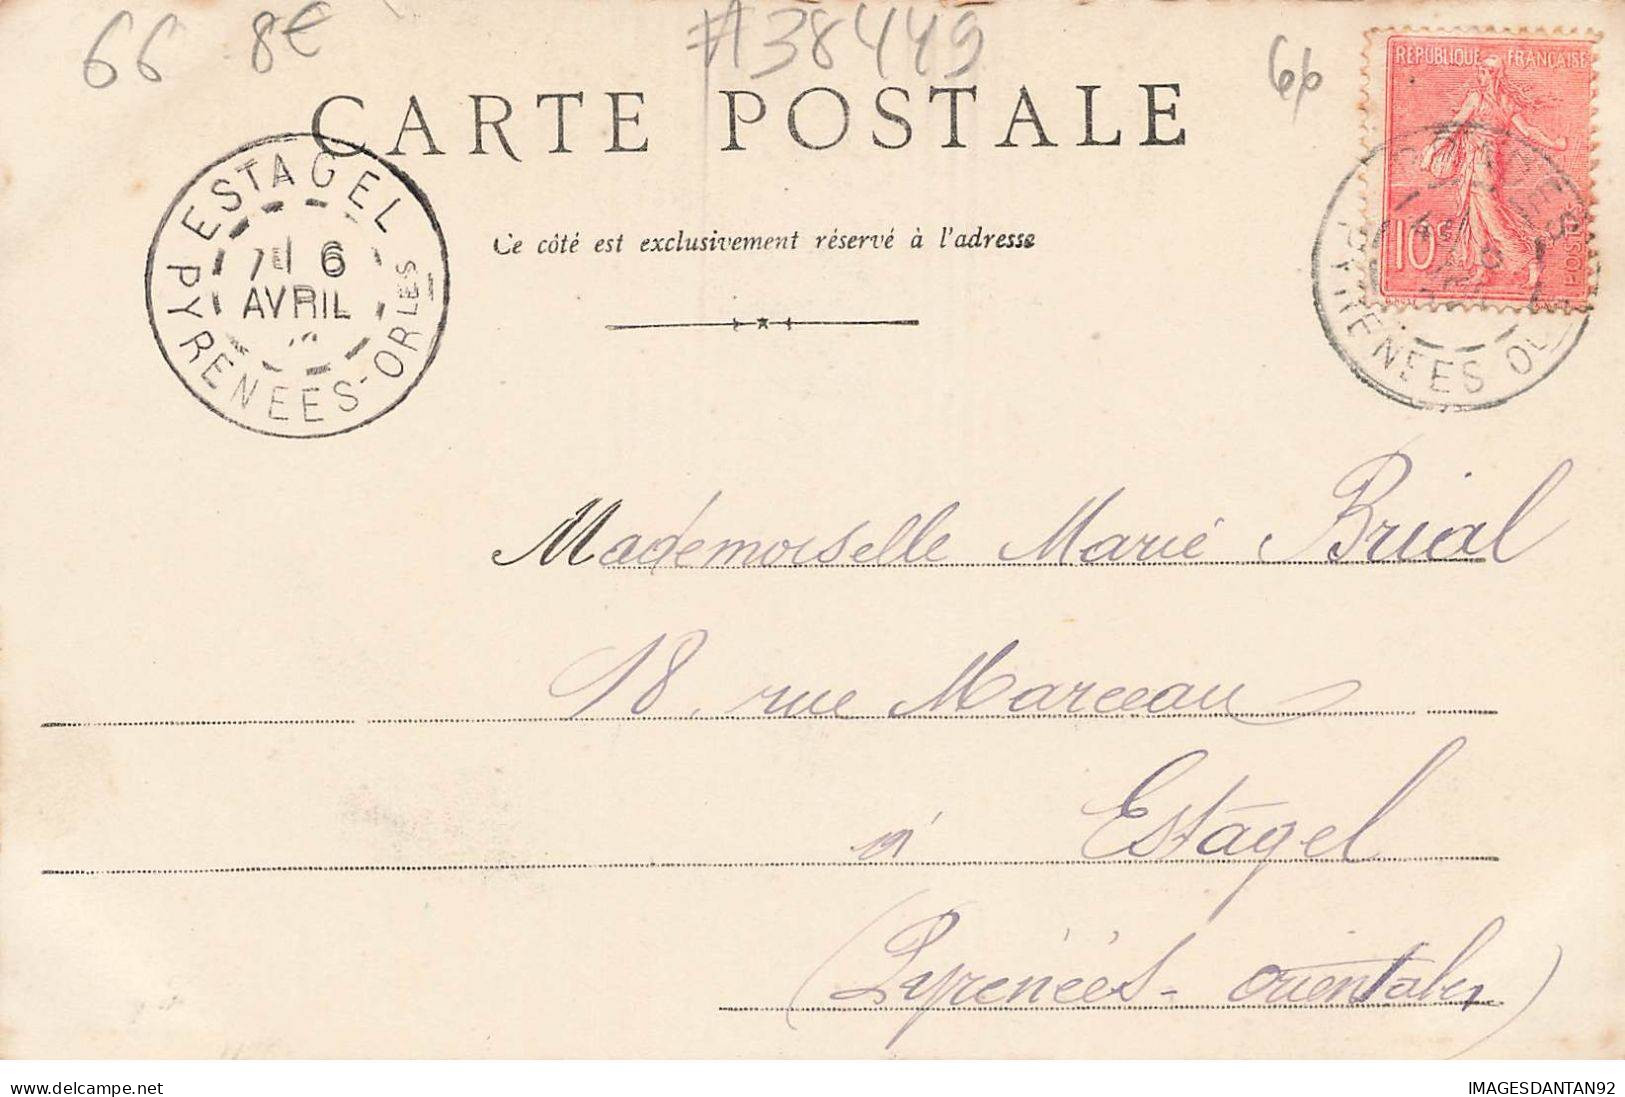 66 8€ #38449 66
CARTE POSTALE
REPUBLIQUE FRANÇAISE
10c
POSTES
ESTAGEL
6
AVRIL
PYRENEES-ORLES
PYRENEES
Ce côté est exclusivement réservé à l'adresse
Mademoiselle Marie Brial
18, rue Marceau
à Estagel
(Pyrénées-orientales)
www.delcampe.net
IMAGESDANTAN92